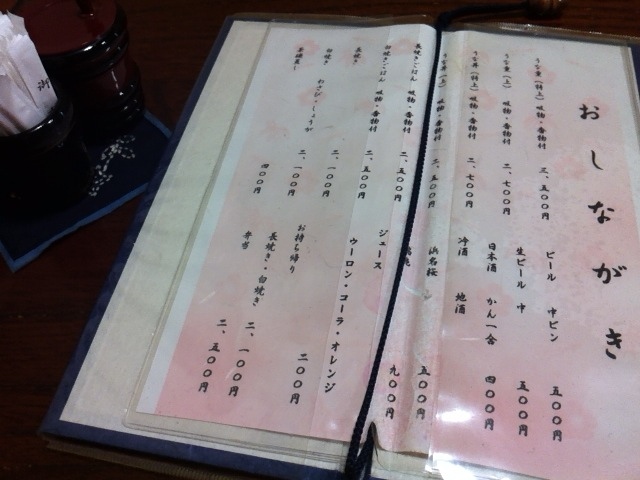 おしながき
うな重（特上）吸物・香物付 三、五〇〇円
うな丼（上）吸物・香物付 二、七〇〇円
うな丼（特上）吸物・香物付 二、七〇〇円
うな丼（上）吸物・香物付 二、五〇〇円
長焼きごはん 吸物・香物付 二、五〇〇円
白焼きごはん 吸物・香物付 二、五〇〇円
長焼き 二、一〇〇円
白焼き わさび・しょうが 二、一〇〇円
四〇〇円
ビール 中ビン 五〇〇円
生ビール 中 五〇〇円
日本酒 かん一合 四〇〇円
冷酒 地酒
浜名桜 五〇〇円
九〇〇円
ジュース
ウーロン・コーラ・オレンジ 二〇〇円
お持ち帰り
長焼き・白焼き 二、一〇〇円
弁当 二、五〇〇円
御